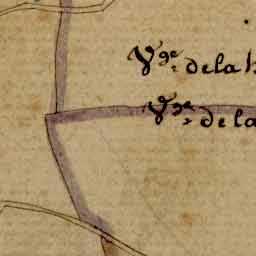 Vge. de la
Vge. de la